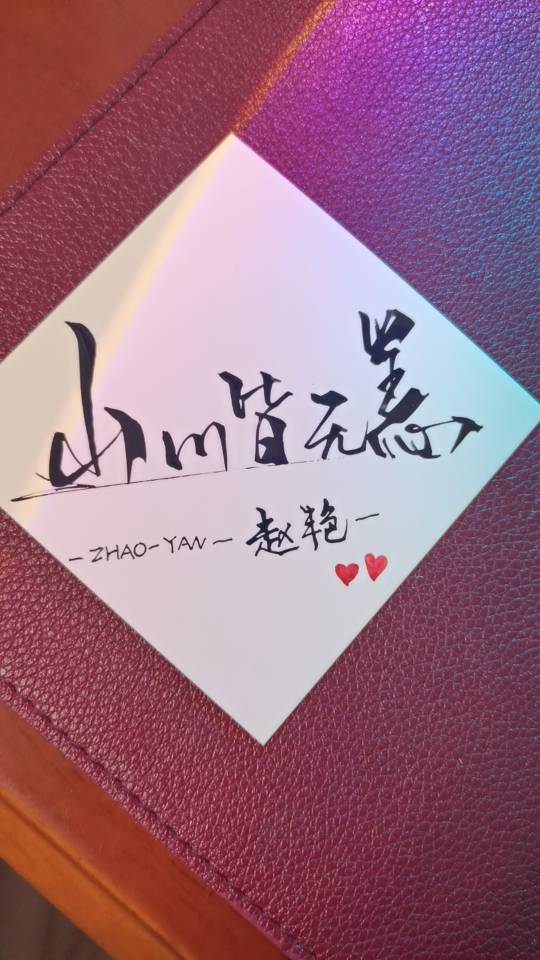 山川皆无恙
-ZHAO-YAN- 赵艳-